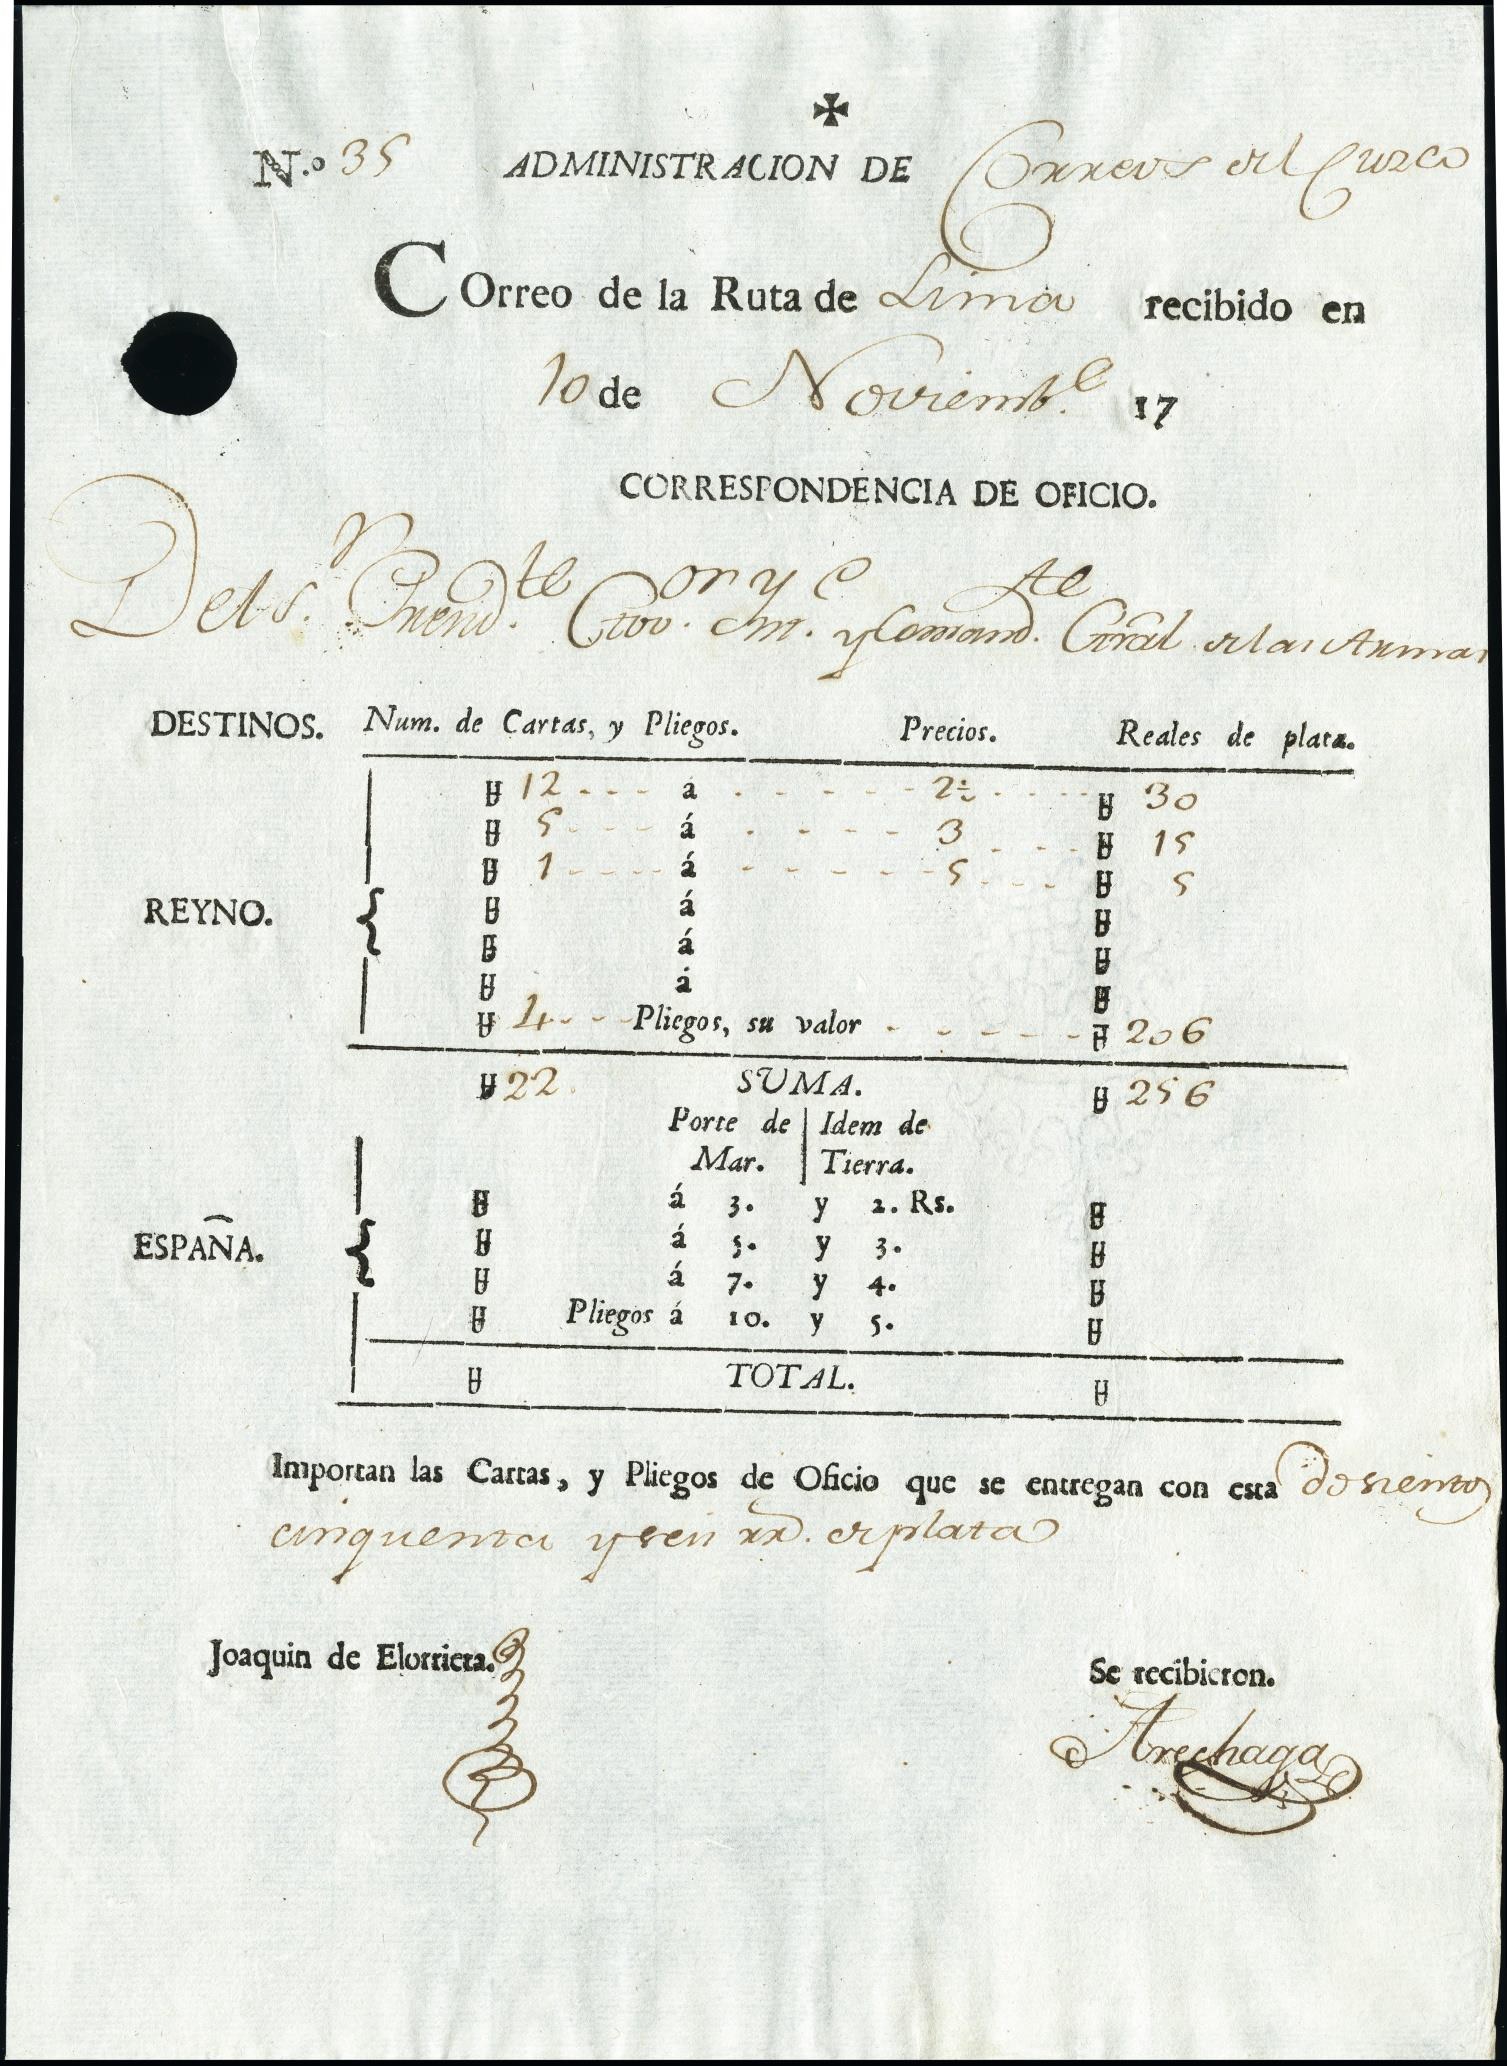 N.o 35 ADMINISTRACION DE Correos del Cuzco
COrreo de la Ruta de Lima recibido en
10 de Noviemb.e 17
CORRESPONDENCIA DE OFICIO.
Del S.r Yntend.te Gov.or y C Int. y Comand.te Gral de las Armas
DESTINOS. Num. de Cartas, y Pliegos. Precios. Reales de plata.
12 á 2½ 30
5 á 3 15
1 á 5 5
REYNO. á
á
á
4 Pliegos, su valor 206
22 SUMA. 256
Porte de | Idem de
Mar. | Tierra.
á 3. y 2. Rs.
ESPAÑA. á 5. y 3.
á 7. y 4.
Pliegos á 10. y 5.
TOTAL.
Importan las Cartas, y Pliegos de Oficio que se entregan con esta dosientos
cinquenta y seis rr.s de plata
Joaquin de Elorrieta.
Se recibieron.
Arechaga